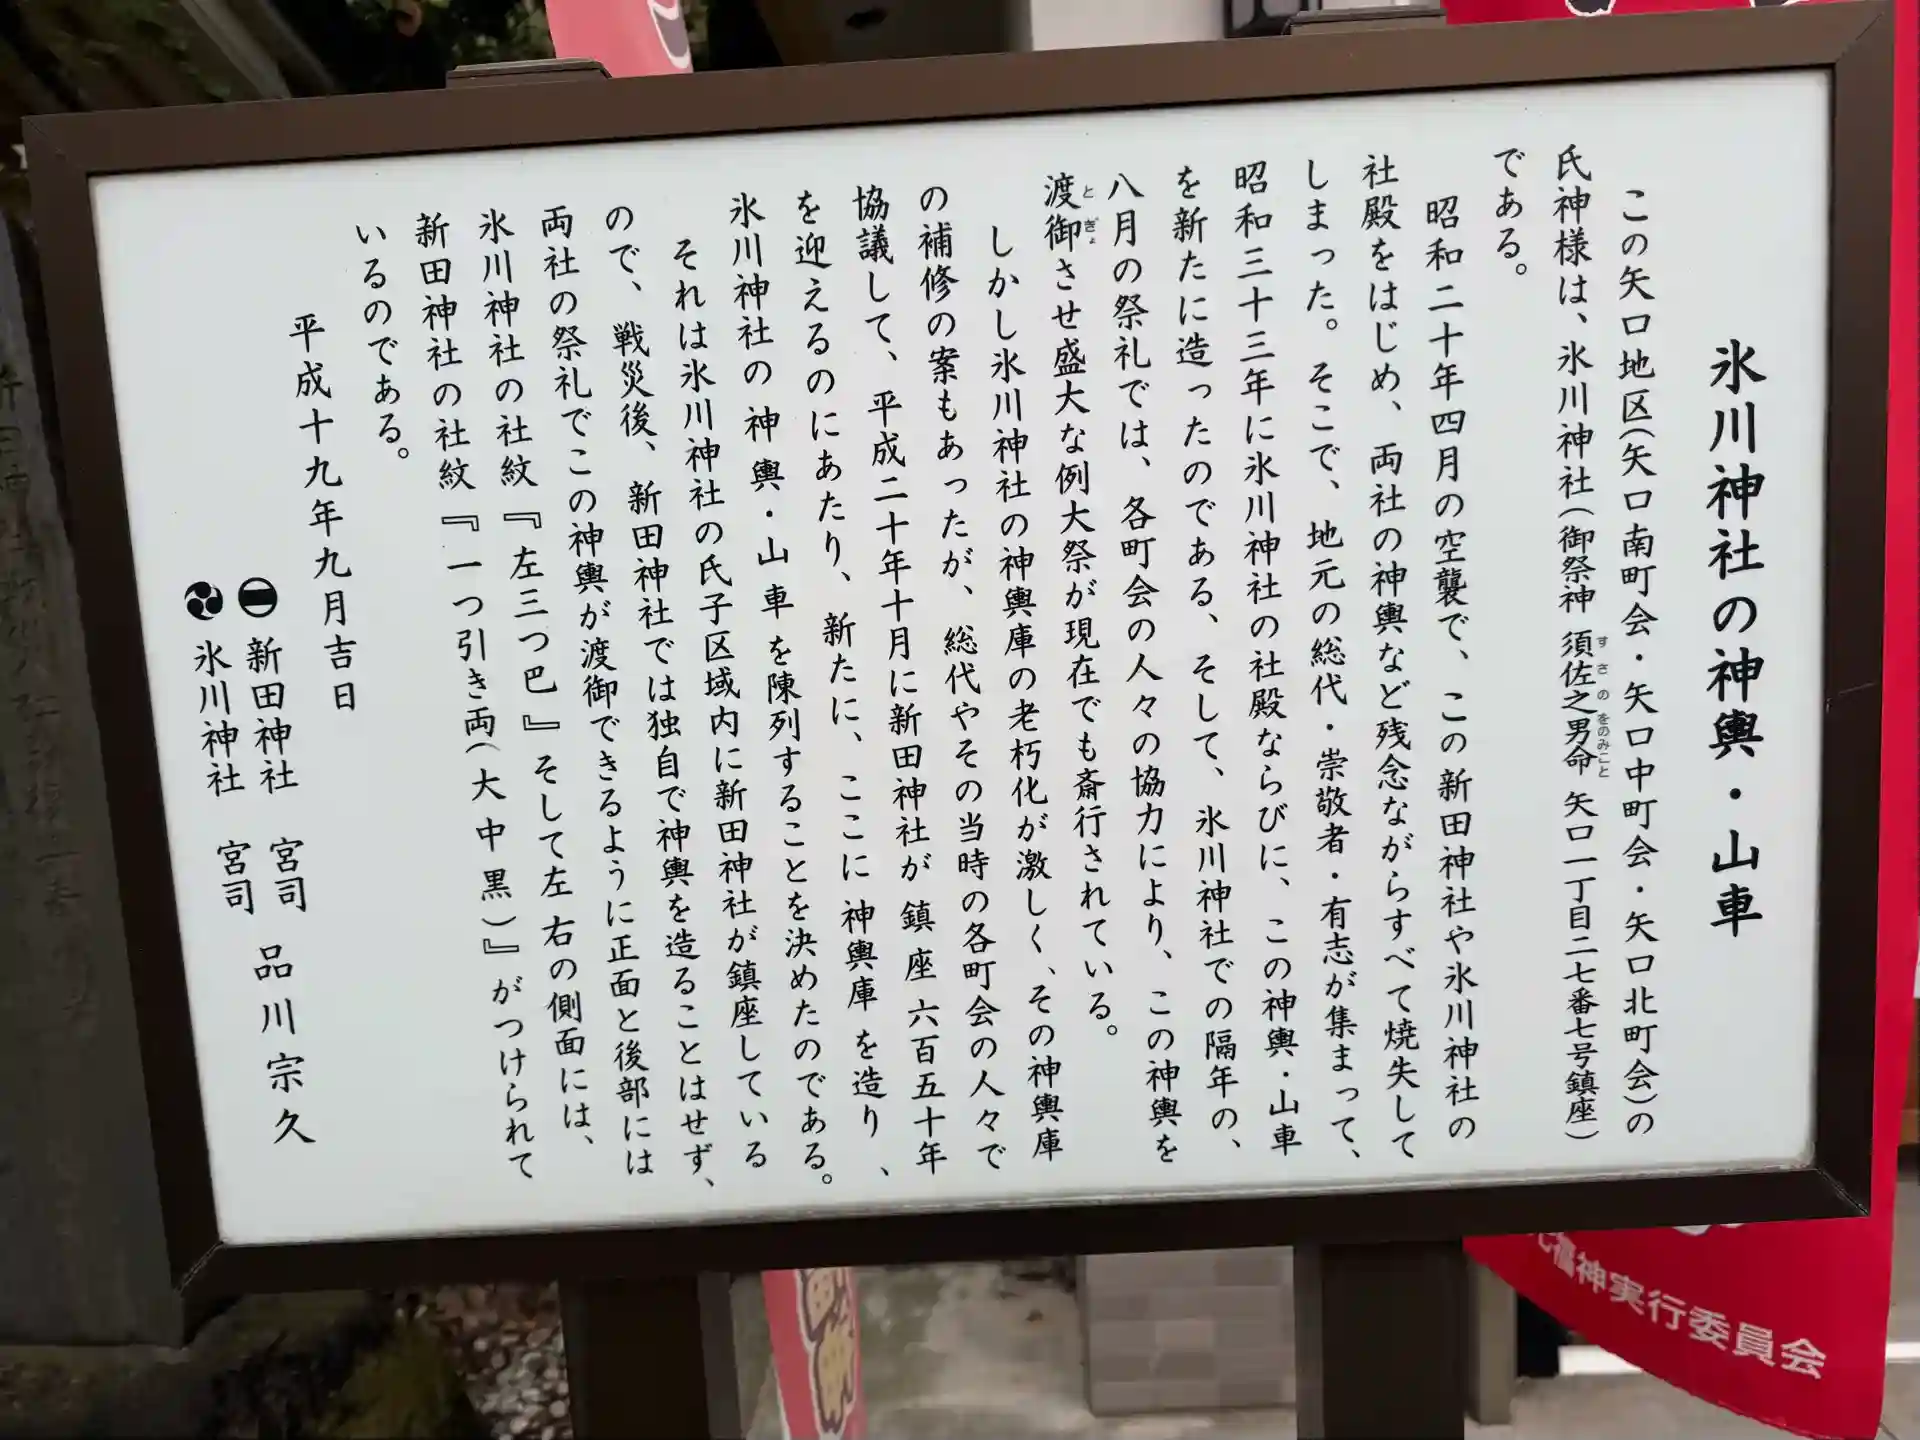 氷川神社の神輿・山車
この矢口地区(矢口南町会・矢口中町会・矢口北町会)の
氏神様は、氷川神社(御祭神 須佐之男命 矢口一丁目二七番七号鎮座)
すさのをのみこと
である。
昭和二十年四月の空襲で、この新田神社や氷川神社の
社殿をはじめ、両社の神輿など残念ながらすべて焼失して
しまった。そこで、地元の総代・崇敬者・有志が集まって、
昭和三十三年に氷川神社の社殿ならびに、この神輿・山車
を新たに造ったのである、そして、氷川神社での隔年の、
八月の祭礼では、各町会の人々の協力により、この神輿を
渡御させ盛大な例大祭が現在でも斎行されている。
とぎょ
しかし氷川神社の神輿庫の老朽化が激しく、その神輿庫
の補修の案もあったが、総代やその当時の各町会の人々で
協議して、平成二十年十月に新田神社が鎮座六百五十年
を迎えるのにあたり、新たに、ここに神輿庫を造り、
氷川神社の神輿・山車を陳列することを決めたのである。
それは氷川神社の氏子区域内に新田神社が鎮座している
ので、戦災後、新田神社では独自で神輿を造ることはせず、
両社の祭礼でこの神輿が渡御できるように正面と後部には
氷川神社の社紋『左三つ巴』そして左右の側面には、
新田神社の社紋『一つ引き両(大中黒)』がつけられて
いるのである。
平成十九年九月吉日
新田神社 宮司 品川宗久
氷川神社 宮司
福神実行委員会